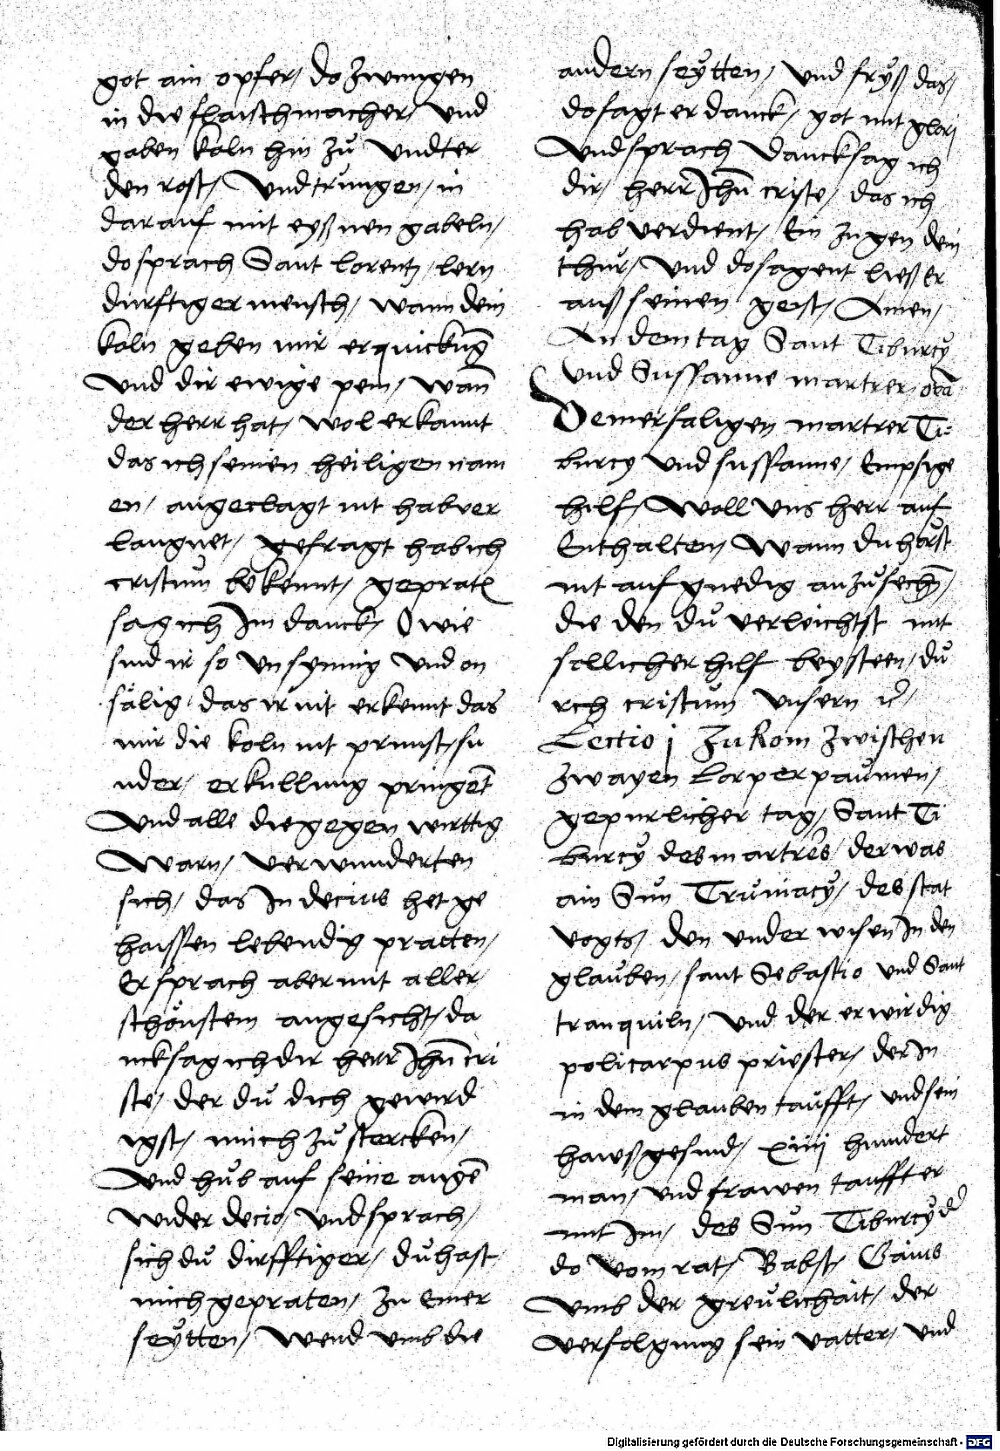 got ain opfer / do zwungen
in die flaischmacher / und
gaben koln hin zů undter
den rost / und trungen / in
darauf mit eyßnen gabeln /
do sprach Sant Lorentz / lern
durftiger mensch / wann dein
koln geben mir erquickūg
und dir ewige pein / wan̄
der herr hat / wol erkannt
das ich seinen heiligen nam
en / angeclagt nit hab ver
laugnet / gefragt hab ich
cristum bekennt / gepraten
sag ich Im danck / O wie
sind ir so unsynnig und on
sälig das ir nit erkennt das
mir die koln nit prunst / su
nder / erkullung pringēt
und alle die gegen wirttig
warn / verwunderten
sich / das In decius het ge
haissen lebendig pratten /
Er sprach aber mit aller
schönstem angesicht / da
ncksag ich dir herr Jhū cri
ste / der du dich gewird
igst / mich zů stercken /
und hůb auf seine augē
wider decio / und sprach /
sich du dirfftiger / du hast
mich gepraten / zu einer
seÿtten / wend umb die
andern seÿtten / und frÿß das /
do sagt er danck / got mit glori
und sprach dancksag ich
dir / herr Jhū criste / das ich
hab verdient / Ein zu gen dein
thür / und do sagent ließ Er
auß seinen geist / Amen /
An dem tag Sant Tiburcÿ
und Sussanne martrer orā
Deiner saligen martrer Ti=
burcy und sussanne / Empsige
hilf / woll uns herr auf
Enthalten / wann du hörst
nit auf gnedig anzůsechn̄ /
die den du verleichtst mit
sollicher hilf beysteen / du
rch cristum unsern
Lectio j Zukom zwischen
zwayen Lorperpaumen /
gepurlicher tag / Sant Ti
burcÿ des martrers / der was
ain Sun Cromacÿ / des stat
vogts / den under wisen In den
glauben / sant Sebastio und Sant
tranquiln / und der erwirdig
policarpus priester / der In
in dem glauben taufft / und sein
hawß gesind / xiiij hundert
man / und frawen taufft er
mit Im / des Sun Tiburcÿ
do vom rat / Babst / Gaius
umb der greulichait / der
verfolgung sein vatter / und
Digitalisierung gefördert durch die Deutsche Forschungsgemeinschaft - DFG